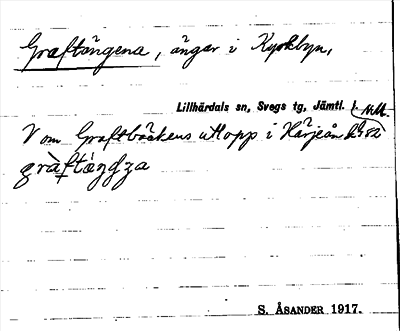 Graftängena, ängar i Kyrkbyn,
Lillhärdals sn, Svegs tg, Jämtl. l.
V om Graftbäckens utlopp i Härjeån
S. ÅSANDER 1917.